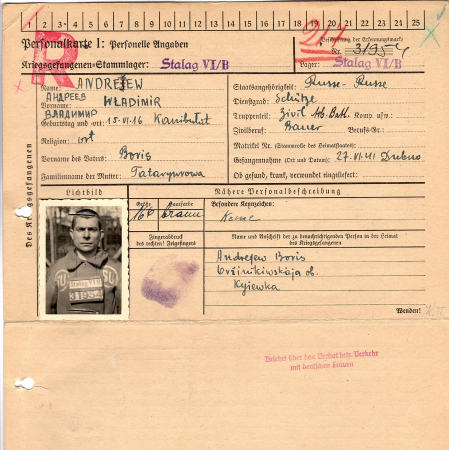 1 2 3 4 5 6 7 8 9 10 11 12 13 14 15 16 17 18 19 20 21 22 23 24 25
Personalkarte I: Personelle Angaben
Kriegsgefangenen-Stammlager: Stalag VI/B
Beschriftung der Erkennungsmarke
Nr. 31954
Lager: Stalag VI/B
R
Des Kriegsgefangenen
Name: ANDREJEW
АНДРЕЕВ
Vorname: WŁADIMIR
ВЛАДИМИР
Geburtstag und -ort: 15.VI.16
Religion: ort.
Vorname des Vaters: Boris
Familienname der Mutter:
Staatsangehörigkeit: Russe-Russe
Dienstgrad: Schütze
Truppenteil: Zivil Ab. Batl. Komp. usw.:
Zivilberuf: Bauer Berufs-Gr.:
Matrikel Nr. (Stammrolle des Heimatstaates):
Gefangennahme (Ort und Datum): 27.VI.41 Dubno
Ob gesund, krank, verwundet eingeliefert:
Lichtbild
Nähere Personalbeschreibung
Größe Haarfarbe Besondere Kennzeichen:
braun Keine
Fingerabdruck
des rechten! Zeigefingers
Name und Anschrift der zu benachrichtigenden Person in der Heimat
des Kriegsgefangenen
Andrejew Boris
ob.
Kyjewka
Stalag VI B
31954
Wenden!
Belehrt über das Verbot betr. Verkehr
mit deutschen Frauen